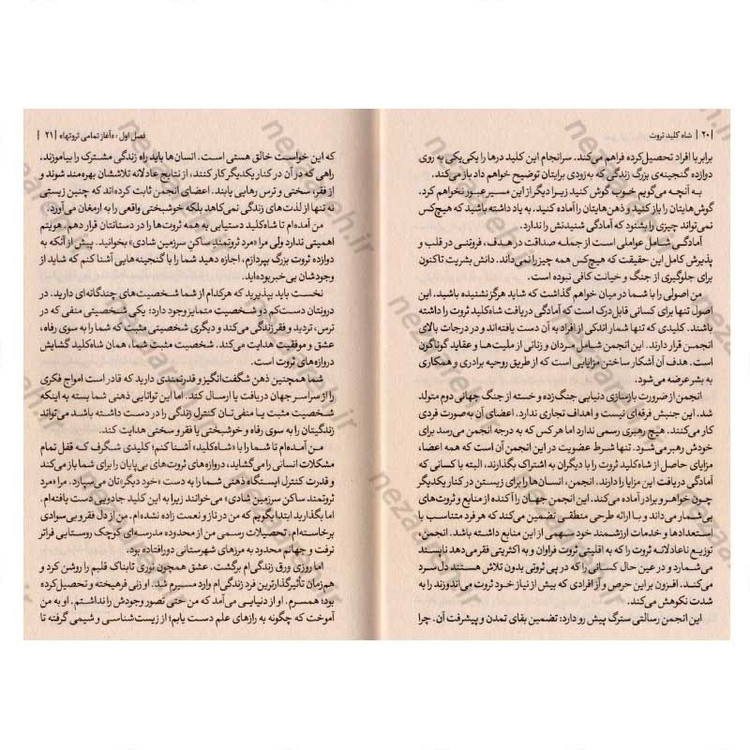 | ۲۰ | شاه کلید ثروت
برابر یا افراد تحصیل‌کرده فراهم می‌کند. سرانجام این کلید درها را یکی‌یکی به روی
دوازده گنجینه‌ی بزرگ زندگی که به‌زودی برایتان توضیح خواهم داد باز می‌کند.
به آنچه می‌گویم خوب گوش کنید زیرا دیگر از این مسیر عبور نخواهم کرد.
گوش‌هایتان را باز کنید و ذهن‌هایتان را آماده کنید. به یاد داشته باشید که هیچ‌کس
نمی‌تواند چیزی را بشنود که آمادگی شنیدنش را ندارد.
آمادگی شامل عواملی است از جمله صداقت در هدف، فروتنی در قلب و
پذیرش کامل این حقیقت که هیچ‌کس همه چیز را نمی‌داند. دانش بشریت تاکنون
برای جلوگیری از جنگ و خیانت کافی نبوده است.
من اصولی را با شما در میان خواهم گذاشت که شاید هرگز نشنیده باشید. این
اصول تنها برای کسانی قابل درک است که آمادگی دریافت شاه‌کلید ثروت را داشته
باشند. کلیدی که تنها شمار اندکی از افراد به آن دست یافته‌اند و در درجات بالای
انجمن قرار دارند. این انجمن شامل مردان و زنانی از ملیت‌ها و عقاید گوناگون
است. هدف آن آشکار ساختن مزایایی است که از طریق روحیه برادری و همکاری
به بشر عرضه می‌شود.
انجمن از ضرورت بازسازی دنیایی جنگ‌زده و خسته از جنگ جهانی دوم متولد
شد. این جنبش فرقه‌ای نیست و اهداف تجاری ندارد. اعضای آن به‌صورت فردی
کار می‌کنند. هیچ رهبری رسمی ندارد اما هر کس که به درجه انجمن می‌رسد برای
خودش رهبر می‌شود. تنها شرط عضویت در این انجمن آن است که همه اعضا،
مزایای حاصل از شاه‌کلید ثروت را با دیگران به اشتراک بگذارند، البته با کسانی که
آمادگی دریافت این مزایا را دارند. انجمن، انسان‌ها را برای زیستن در کنار یکدیگر
چون خواهر و برادر آماده می‌کند. این انجمن جهان را آکنده از منابع و ثروت‌های
بی‌شمار می‌داند و با ارائه طرحی منطقی، تضمین می‌کند که هر فرد متناسب با
استعدادها و خدمات ارزشمند خود سهمی از این منابع داشته باشد. انجمن
توزیع ناعادلانه ثروت را که به اقلیتی ثروت فراوان و به اکثریتی فقر می‌دهد ناپسند
می‌شمارد و در عین حال کسانی را که در پی ثروتی بدون تلاش هستند دل سرد
می‌کند. افزون بر این حرص و آز افرادی که بیش از نیاز خود ثروت می‌اندوزند را به
شدت نکوهش می‌کند.
این انجمن رسالتی سترگ پیش رو دارد: تضمین بقای تمدن و پیشرفت آن. چرا
فصل اول: «آغاز تمامی ثروتها» | ۲۱ |
که این خواست خالق هستی است. انسان‌ها باید راه زندگی مشترک را بیاموزند.
راهی که در آن در کنار یکدیگر کار کنند، از نتایج عادلانه تلاششان بهره‌مند شوند و
از فقر، سختی و ترس رهایی یابند. اعضای انجمن ثابت کرده‌اند که چنین زیستی
نه تنها از لذت‌های زندگی نمی‌کاهد بلکه خوشبختی واقعی را به ارمغان می‌آورد.
من آمده‌ام تا شاه‌کلید دستیابی به همه ثروت‌ها را در دستانتان قرار دهم. هویتم
اهمیتی ندارد ولی مرا «مرد ثروتمند ساکن سرزمین شادی» بخوانید. پیش از آنکه به
دوازده ثروت بزرگ بپردازم، اجازه دهید شما را با گنجینه‌هایی آشنا کنم که شاید از
وجودشان بی‌خبر بوده‌اید.
نخست باید بپذیرید که هرکدام از شما شخصیت‌های چندگانه‌ای دارید. در
درونتان دست‌کم دو شخصیت متمایز وجود دارد: یکی شخصیتی منفی که در
ترس، تردید و فقر زندگی می‌کند و دیگری شخصیتی مثبت که شما را به سوی رفاه،
عشق و موفقیت هدایت می‌کند. شخصیت مثبت شما، همان شاه‌کلید گشایش
دروازه‌های ثروت است.
شما همچنین ذهن شگفت‌انگیز و قدرتمندی دارید که قادر است امواج فکری
را از سراسر جهان دریافت یا ارسال کند. اما این توانایی ذهنی شما بسته به اینکه
شخصیت مثبت یا منفی‌تان کنترل زندگی را در دست داشته باشد می‌تواند
زندگیتان را به سوی رفاه و خوشبختی یا فقر و سختی هدایت کند.
من آمده‌ام تا شما را با «شاه‌کلید» آشنا کنم! کلیدی شگرف که قفل تمام
مشکلات انسانی را می‌گشاید، دروازه‌های ثروت‌های بی‌پایان را برای شما باز می‌کند
و قدرت کنترل ایستگاه ذهنی شما را به دست «خود دیگر»تان می‌سپارد. مرا «مرد
ثروتمند ساکن سرزمین شادی» می‌خوانند زیرا به این کلید جادویی دست یافته‌ام.
اما بگذارید ابتدا بگویم که من در ناز و نعمت زاده نشده‌ام. من از دل فقر و بی‌سوادی
برخاسته‌ام. تحصیلات رسمی من از محدوده مدرسه‌ای کوچک روستایی فراتر
نرفت و جهانم محدود به مرزهای شهرستانی دورافتاده بود.
اما روزی ورق زندگی‌ام برگشت. عشق همچون نوری تابناک قلبم را روشن کرد و
هم‌زمان تأثیرگذارترین فرد زندگی‌ام وارد مسیرم شد. او زنی فرهیخته و تحصیل‌کرده
بود؛ همسرم. او از دنیایی می‌آمد که من حتی تصور وجودش را نداشتم. او به من
آموخت که چگونه به رازهای علم دست یابم؛ از زیست‌شناسی و شیمی گرفته تا